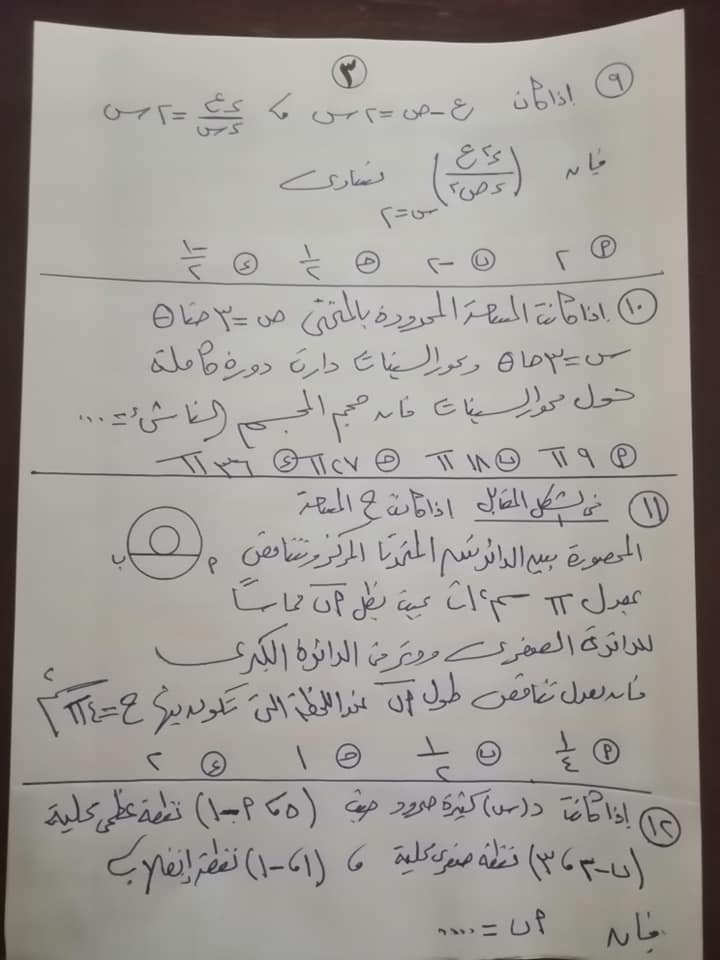 ٣
٩ إذا كان ع - ص = ٢ س ، ءع/ءس = ٢ س
فإن (ء٢ع/ءص٢) س=٢ تساوى
أ ٢ ب -٢ ج ١/٢ د -١/٢
١٠ إذا كانت المساحة المحدودة بالمنحنى ص = ٣ حتا θ
س = ٣ حا θ ومحور السينات دارت دورة كاملة
حول محور السينات فإن حجم الجسم الناشئ = ....
أ ٩ π ب ١٨ π ج ٢٧ π د ٣٦ π
١١ فى الشكل المقابل إذا كانت ح المساحة
المحصورة بين الدائرتين المتحدتا المركز وتتناقص
بمعدل π سم٢/ث بحيث يظل أب مماساً
للدائرة الصغرى ووتر فى الدائرة الكبرى
فإن معدل تناقص طول أب عند اللحظة التى تكون فيها ح = ٤ π سم٢
أ ب
أ ١/٤ ب ١/٢ ج ١ د ٢
١٢ إذا كانت د(س) كثيرة حدود حيث (٥ ، أ - ١) نقطة عظمى محلية
(ب - ٣ ، ٣) نقطة صغرى محلية ، (١ ، -١) نقطة إنقلاب
فإن أ ب = ....